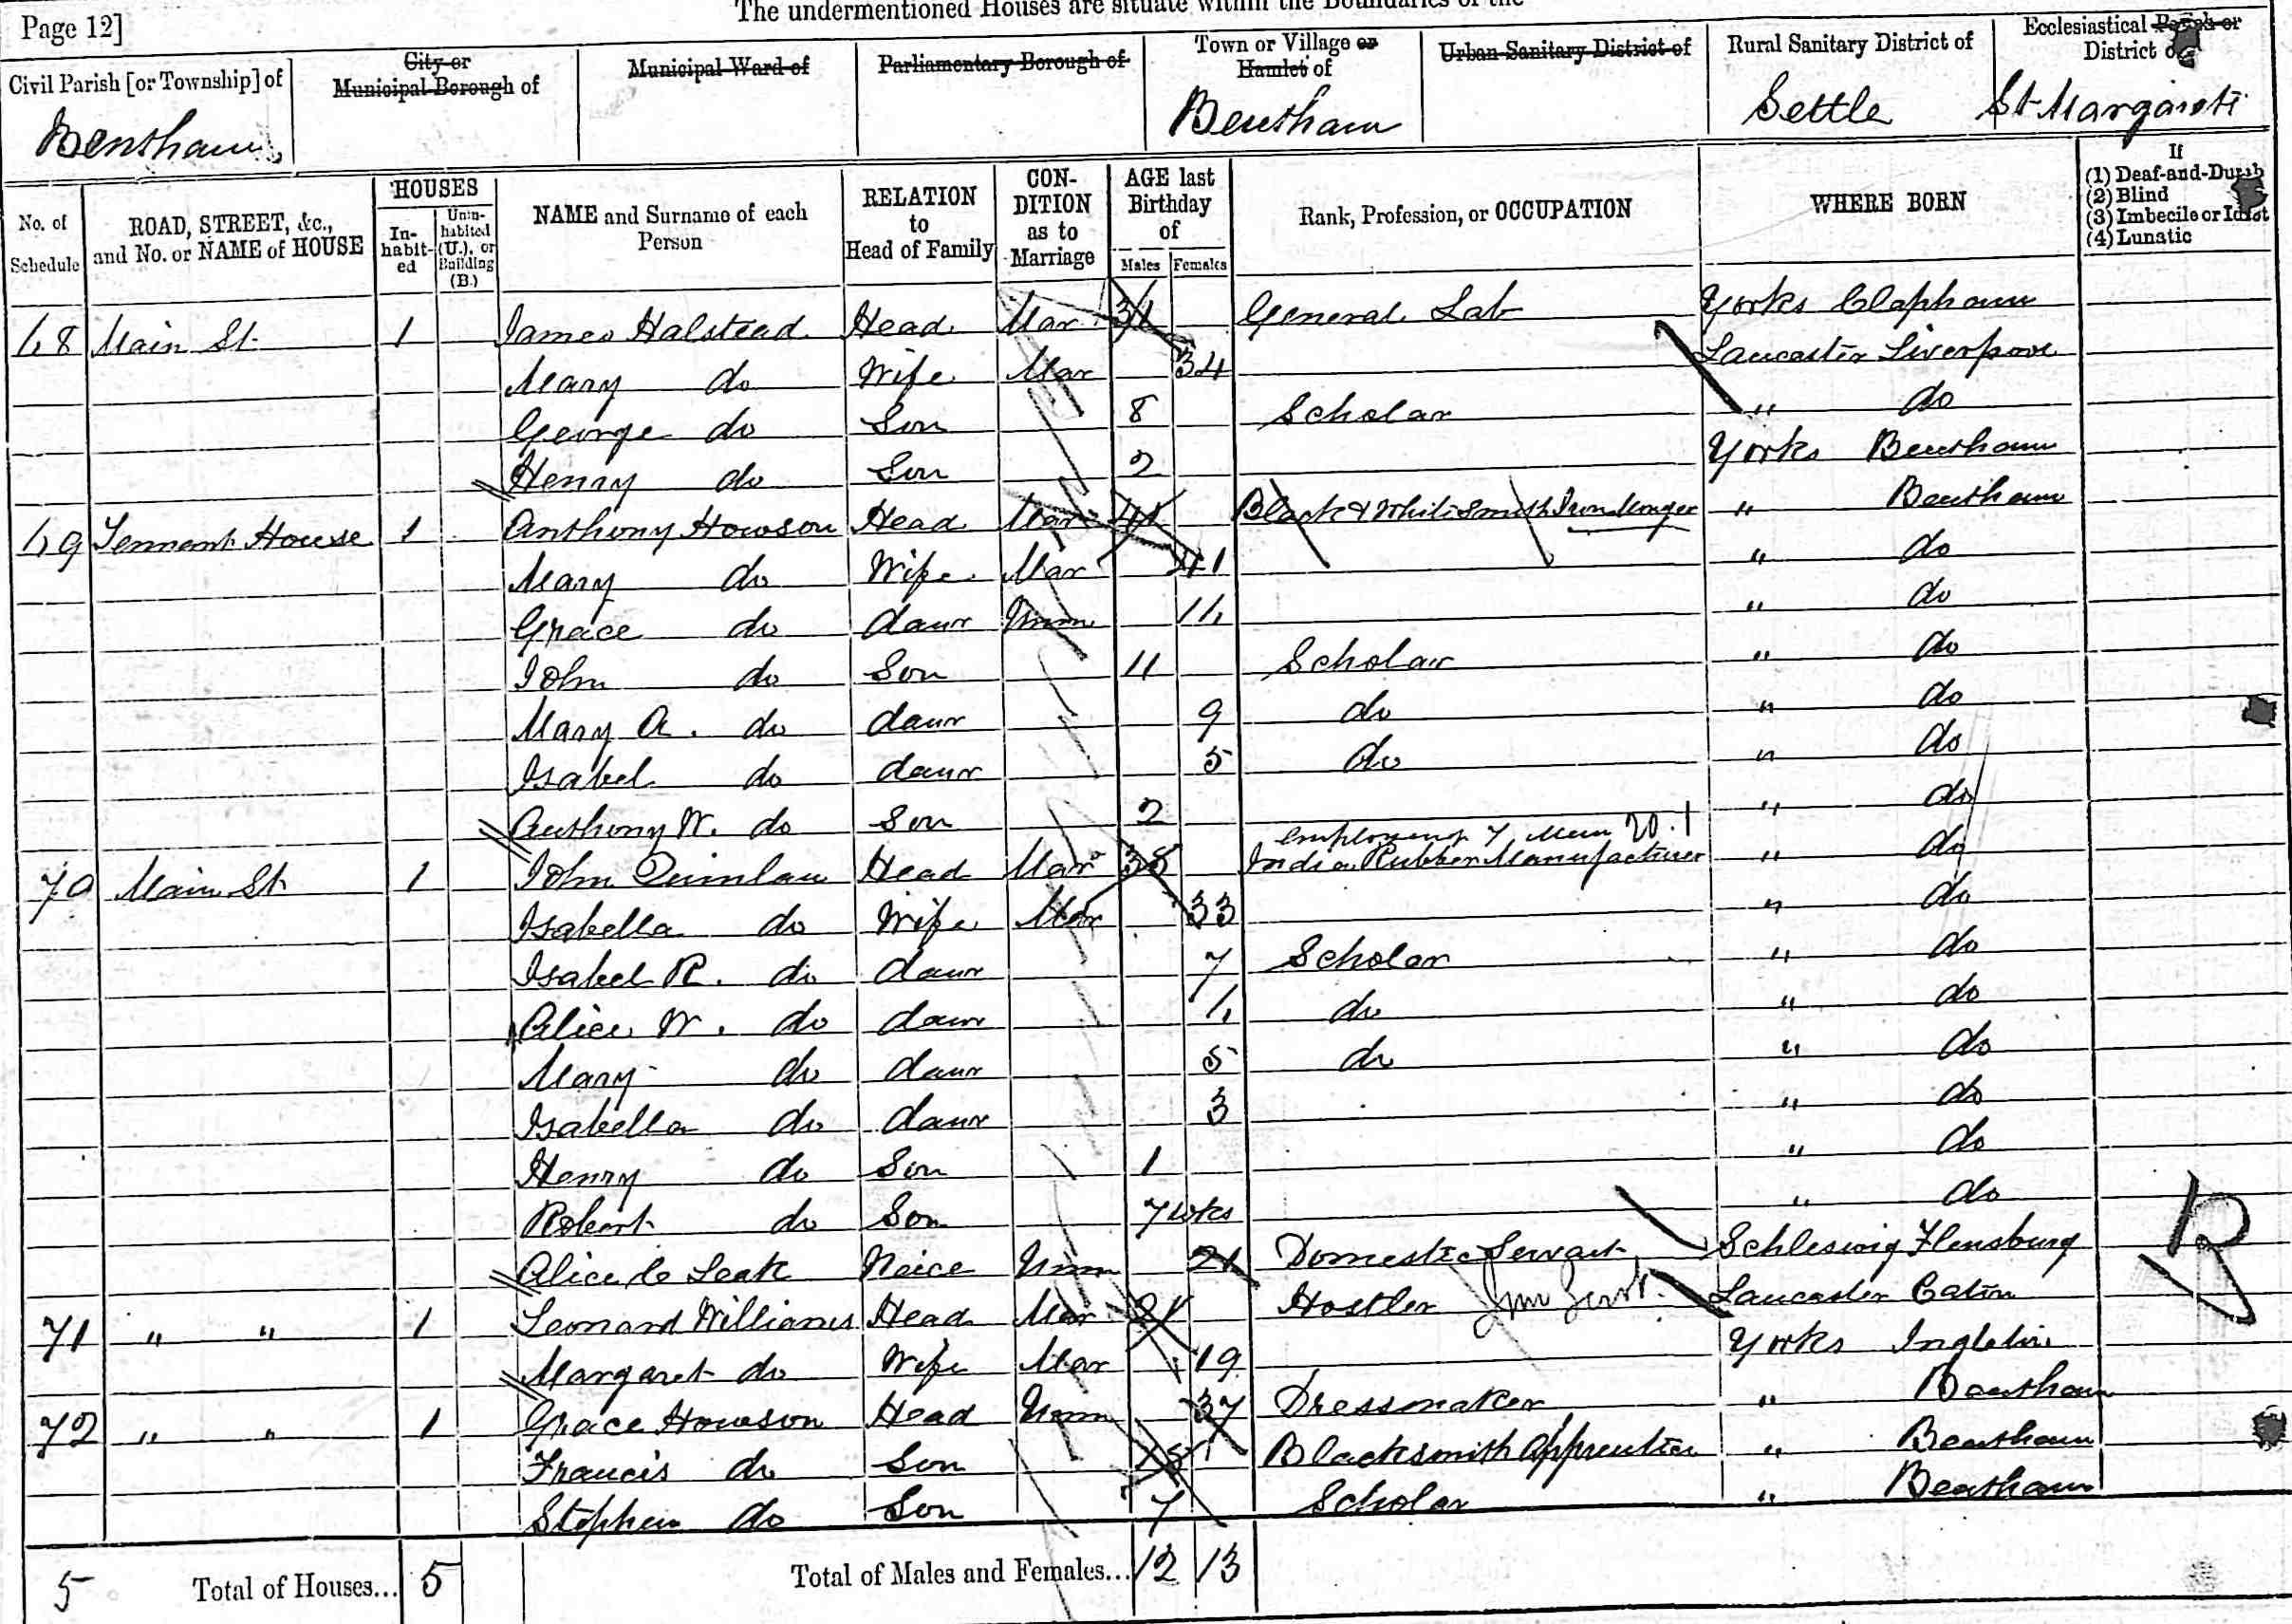 The undermentioned Houses are situate within the Boundaries of the
Page 12]
Civil Parish [or Township] of
City or Municipal Borough of
Municipal Ward of
Parliamentary Borough of
Town or Village or Hamlet of
Urban Sanitary District of
Rural Sanitary District of
Ecclesiastical Parish or District of
Bentham
Bentham
Settle
St Margarets
No. of Schedule
ROAD, STREET, &c., and No. or NAME of HOUSE
HOUSES
In-habit-ed
Unin-habited (U.), or Building (B.)
NAME and Surname of each Person
RELATION to Head of Family
CON-DITION as to Marriage
AGE last Birthday of
Males Females
Rank, Profession, or OCCUPATION
WHERE BORN
If
(1) Deaf-and-Dumb
(2) Blind
(3) Imbecile or Idiot
(4) Lunatic
68 Main St 1 James Halstead Head Mar 31 General Lab Yorks Clapham
Mary do Wife Mar 34 Lancaster Liverpool
George do Son 8 Scholar " do
Henry do Son 2 Yorks Bentham
69 Tennant House 1 Anthony Howson Head Mar 41 Black & White Smith Iron Monger " Bentham
Mary do Wife Mar 41 " do
Grace do daur Unm 16 " do
John do Son 11 Scholar " do
Mary A. do daur 9 do " do
Isabel do daur 5 do " do
Anthony W. do Son 2 " do
employing 7 Men 20.1
70 Main St 1 John Quinlan Head Mar 38 India Rubber Manufacturer " do
Isabella do Wife Mar 33 " do
Isabel R. do daur 7 Scholar " do
Alice W. do daur 6 do " do
Mary do daur 5 do " do
Isabella do daur 3 " do
Henry do Son 1 " do
Robert do Son 7 wks " do
Alice Leak Neice Unm 21 Domestic Servant Schleswig Flensburg
71 " " 1 Leonard Williams Head Mar 21 Hostler Inn Servt. Lancaster Caton
Margaret do Wife Mar 19 Yorks Ingleton
72 " " 1 Grace Howson Head Unm 37 Dressmaker " Bentham
Francis do Son 15 Blacksmith Apprentice " Bentham
Stephen do Son 7 Scholar " Bentham
5 Total of Houses... 5 Total of Males and Females... 12 13